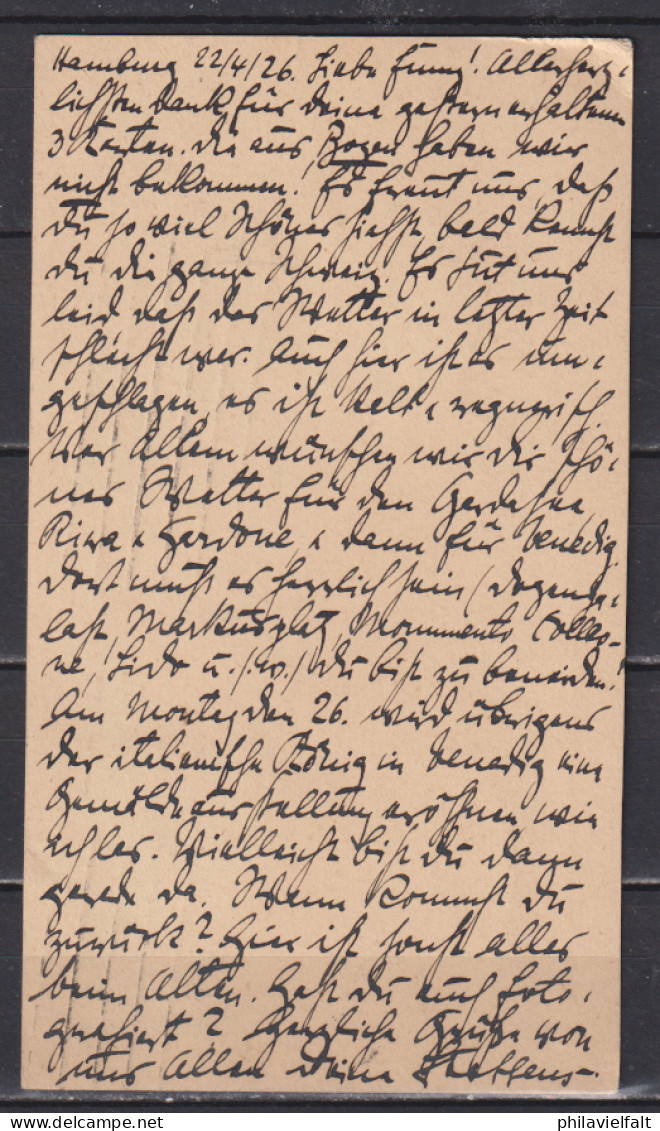 Hamburg 22/4/26. Liebe Fanny! Allerherz-
lichsten Dank für deine gestern erhaltenen
3 Karten. die aus Bozen haben wir
nicht bekommen! Es freut uns, daß
du so viel Schönes siehst, bald kennst
du die ganze Schweiz. Es tut uns
leid daß das Wetter in letzter Zeit
schlecht war. Auch hier ist es um-
geschlagen, es ist kalt & regnerisch.
Vor Allem wünschen wir dir schö-
nes Wetter für den Gardasee,
Riva & Gardone, & dann für Venedig.
dort muß es herrlich sein (Dogenpa-
last, Markusplatz, Monumento Colleo-
ne, Lido u.s.w.) du bist zu beneiden!
Am Montag den 26. wird übrigens
der italienische König in Venedig eine
Gemäldeausstellung eröffnen, wie
ich las. Vielleicht bist du dann
gerade da. Wann kommst du
zurück? Hier ist sonst alles
beim Alten. Hast du auch foto-
grafiert? Herzliche Grüße von
uns Allen deine
philavielfalt